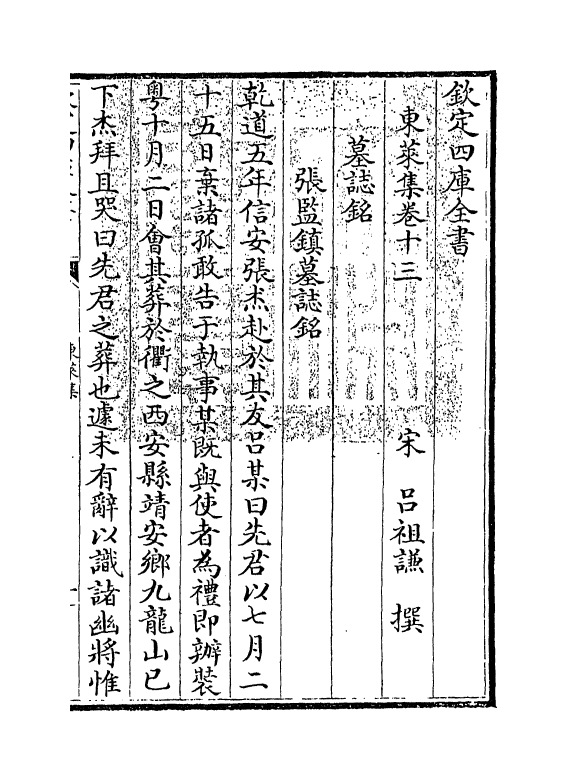 欽定四庫全書
東萊集卷十三 宋 呂祖謙 撰
墓誌銘
張監鎮墓誌銘
乾道五年信安張杰赴於其友呂某曰先君以七月二
十五日棄諸孤敢告于執事某既與使者為禮即辦裝
粵十月二日會其葬於衢之西安縣靖安鄉九龍山已
下杰拜且哭曰先君之葬也遽未有辭以識諸幽將惟
東萊集